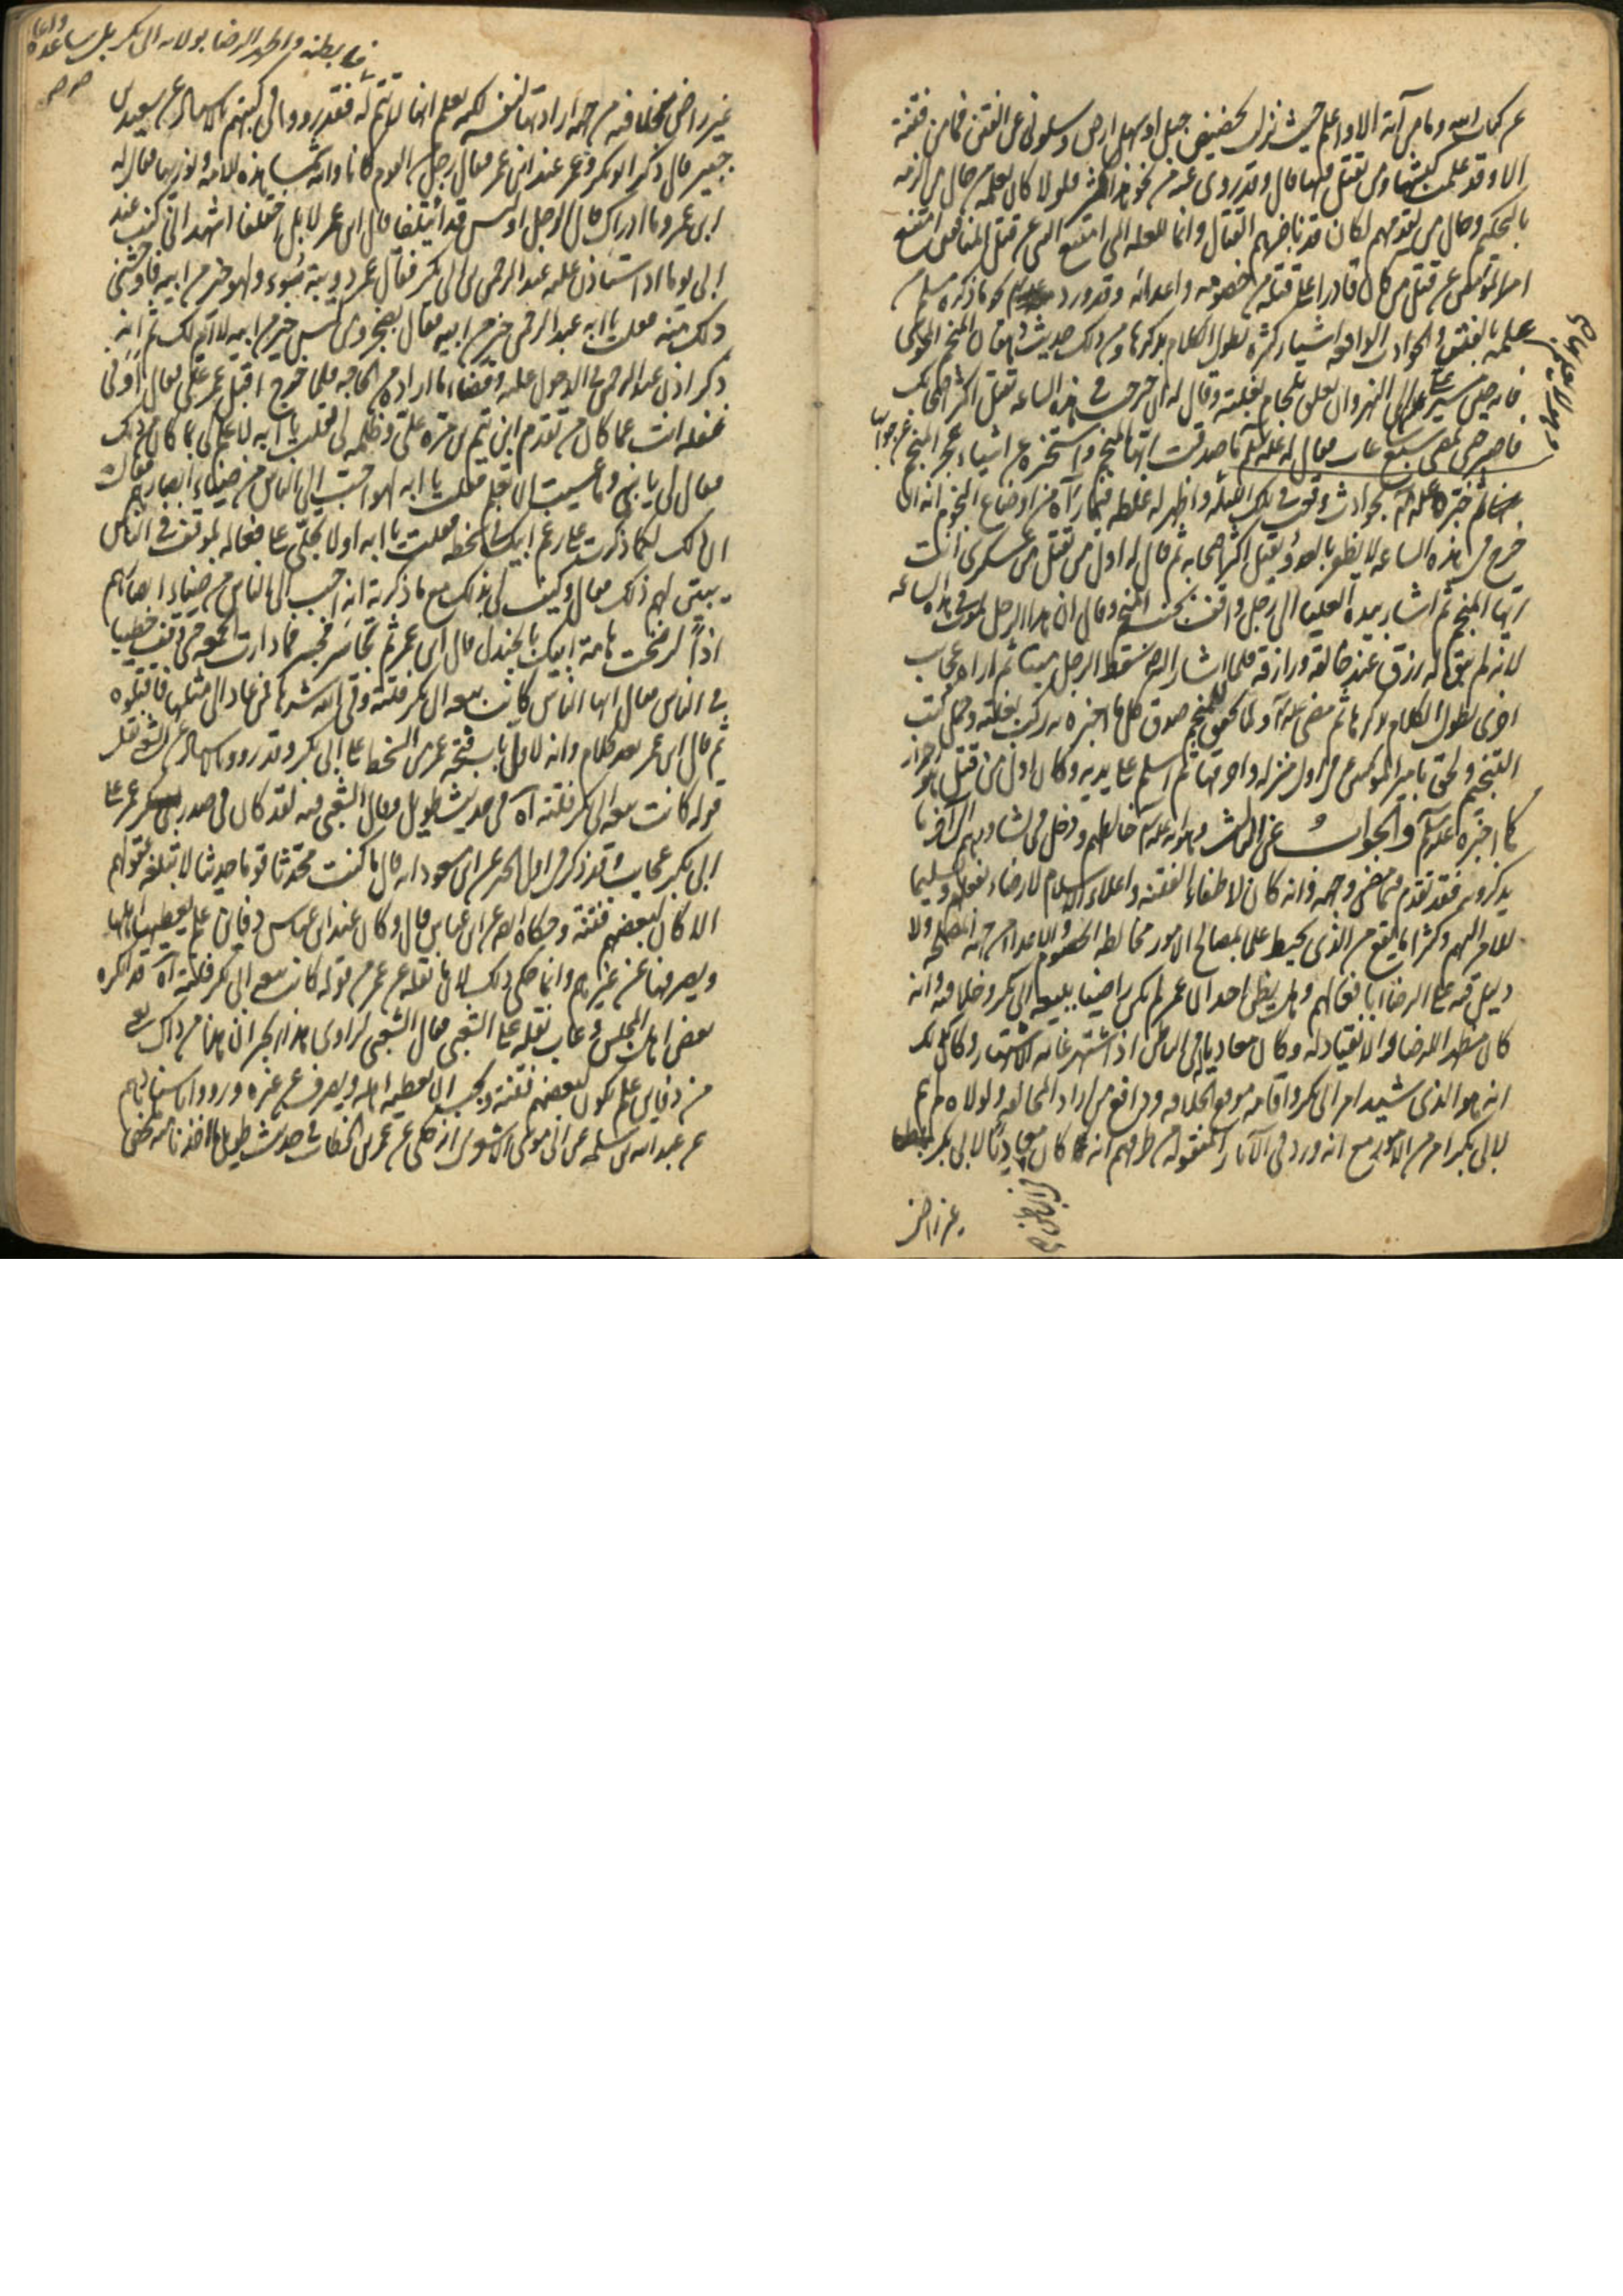 عن كتاب الله وما من آية الا واعلم حيث نزلت بحضيض جبل او سهل ارض وسلوني عن الفتن فما من فتنة
الا وقد علمت كبشها ومن يقتل فيها قال وقد روى عنه من نحو هذا كثير فلولا كان يعلمه من حال من الزمه
بالتحكيم وحال من تقدمهم لكان قد ناجزهم القتال وانما للعلة التي امتنع النبي عن قتل المنافقين امتنع
امير المؤمنين عن قتل من كان قادرا على قتله من خصومه واعدائه وقد ورد نحو ما ذكره من
علمه بالفتن والحوادث الواقعة اشياء كثيرة يطول الكلام بذكرها ومن ذلك حديث دهقان المنجم الطويل
فانه حين مسير على الى النهروان تعلق بلجام بغلته وقال له ان خرجت في هذه الساعة تقتل اكثر اصحابك
فاصبر حتى تمضي سبع ساعات فقال له عليه السلام ما صدقت ايها المنجم واستخبره عن اشياء عجز المنجم عن جواب
ثم خبره بحوادث وقعت في تلك الليلة واظهر له غلطه فيما رآه من اوضاع النجوم انه ان
خرج في هذه الساعة لا يظفر بالعدو ويقتل اكثر اصحابه ثم قال له اول من يقتل من عسكري انت
ايها المنجم ثم اشار بيده العليا الى رجل واقف بجنب المنجم وقال ان هذا الرجل يموت في هذه الساعة
لانه لم يبق له رزق عند خالقه ورازقه فلما اشار اليه سقط الرجل ميتا ثم اراه عجايب
اخرى يطول الكلام بذكرها ثم مضى ولما تحقق للمنجم صدق كل ما اخبره به ركب بغلته وحمل كتب
التنجيم ولحق بامير المؤمنين في اول منزله واحرقها ثم اسلم على يديه وكان اول من قتل
كما اخبره عليه السلام والجواب عن الثالث وهو انه خالطهم ودخل في مشاورتهم الى آخر ما
يذكرونه فقد تقدم فيما مضى وجهه وانه كان لاطفاء الفتنة واعلاء الاسلام لا رضاء بفعلهم وتسليما
للامر اليهم وكثيرا ما يقع من الذي يحيط علما بمصالح الامور مخالطة الخصوم والاعداء من جهة المصلحة ولا
دليل فيه على الرضا بافعالهم وهل يظن احد ان عمر لم يكن راضيا ببيعة ابي بكر وخلافته وانه
كان مظهرا للرضا والانقياد له وكان معاديا في الباطن اذ اشتهر غاية الاشتهار وكالملك
انه هو الذي شيد امر ابي بكر واقامه موقع الخلافة ودافع من اراد المخالفة ولولاه لم يتم
لابي بكر امر من الامور مع انه ورد في الآثار المنقولة من طرقهم انه كان معاديا لابي بكر
غير راض
في باطنه واظهر الرضا بولاية ابي بكر بل ساعده
صح صح
غير راض بخلافته من جهة ارادتها لنفسه لكنه يعلم انها لا تتم له فقد رووا في كتبهم بالاسناد عن سعيد بن
جبير قال ذكر ابو بكر وعمر عند ابن عمر فقال رجل من القوم كانا والله شمسا هذه الامة ونوريها فقال له
ابن عمر وما ادراك قال الرجل او ليس قد ائتلفا قال ابن عمر لا بل اختلفا اشهد اني كنت عند
ابي يوما اذ استأذن عليه عبد الرحمن بن ابي بكر فقال عمر دويبة سوء ولهو خير من ابيه فاوحشني
ذلك منه فقلت يا ابه عبد الرحمن خير من ابيه فقال ومن ليس خير من ابيه لا ام لك ثم انه
ذكر اذن عبد الرحمن في الدخول عليه وقضاء ما اراده من الحاجة فلما خرج اقبل عمر علي فقال أوفي
غفلة انت عما كان من تقدم ابن تيم بن مرة علي وظلمه لي فقلت يا ابه لا علم لي بما كان من ذلك
فقال لي يا بني وما عسيت ان تعلم فقلت يا ابه لهو احب الى الناس من ضياء ابصارهم فقال
ان ذلك لكما ذكرت على رغم ابيك وسخطه فقلت يا ابه اولا تجلي عن فعاله بموقف في الناس
يبين لهم ذلك فقال وكيف لي بذلك مع ما ذكرته انه احب الى الناس من ضياء ابصارهم
اذا لرضخت هامة ابيك بالجندل قال ابن عمر ثم تجاسر فجسر فما دارت الجمعة حتى وقف خطيبا
في الناس فقال ايها الناس كانت بيعة ابي بكر فلتة وقى الله شرها فمن عاد الى مثلها فاقتلوه
ثم قال ابن عمر بعد كلام وانه لاول باب فتحه عمر من السخط على ابي بكر وقد رووا بالاسناد عن الشعبي نقل
قوله كانت بيعة ابي بكر فلتة آه في حديث طويل وقال الشعبي فيه لقد كان في صدر عمر على
ابي بكر عجايب وقد ذكر في اول الخبر عن ابن مسعود انه قال ما كنت محدثا قوما حديثا لا تبلغه عقولهم
الا كان لبعضهم فتنة وحكاه ايضا عن ابن عباس قال وكان عند ابن عباس دفاين علم يعطيها اهلها
ويصرفها عن غيرهم وانما حكى ذلك لان ما نقله عن عمر من قوله كانت بيعة ابي بكر فلتة آه قد انكره
بعض اهل المجلس وعاب نقله على الشعبي فقال الشعبي لراوي هذا الخبر ان هذا من ذاك يعني
من دفاين علم يكون لبعضهم فتنة ويجب ان يعطيه اهله ويصرف عن غيره ورووا باسنادهم
عن عبد الله بن سلمة عن ابي موسى الاشعري انه حكى عن عمر بن الخطاب في حديث طويل